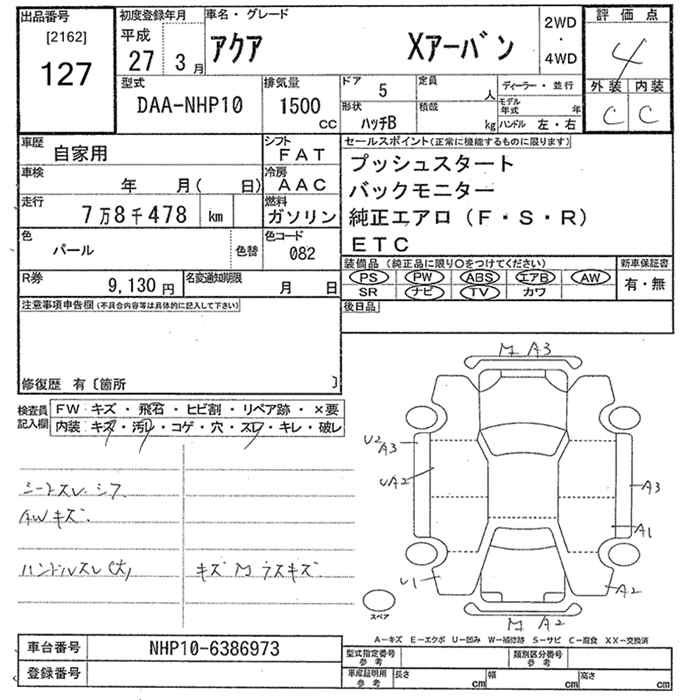 出品番号
[2162]
127
初度登録年月
平成
27 3月
車名・グレード
アクア Xアーバン
2WD
・
4WD
評価点
4
外装 内装
C C
型式
DAA-NHP10
排気量
1500
CC
ドア
5
定員
人
ディーラー・並行
形状
ハッチB
積載
kg
モデル年式 年
ハンドル 左・右
車歴
自家用
シフト
FAT
車検
年 月( 日)
冷房
AAC
走行
7万8千478 km
燃料
ガソリン
色
パール
色替
色コード
082
R券
9,130円
名変通知期限
月 日
セールスポイント(正常に機能するものに限ります)
プッシュスタート
バックモニター
純正エアロ(F・S・R)
ETC
装備品(純正品に限り○をつけてください)
PS PW ABS エアB AW
SR ナビ TV カワ
新車保証書
有・無
後日品
注意事項申告欄(不具合内容等は具体的に記入して下さい)
修復歴 有〔箇所 〕
検査員
記入欄
FW キズ・飛石・ヒビ割・リペア跡・×要
内装 キズ・汚レ・コゲ・穴・スレ・キレ・破レ
シートスレ シワ
AWキズ
ハンドルスレ(大)
キズ M ラスキズ
M A3
U2
A3
UA2
A3
A1
U1
A2
M A2
スペア
A-キズ E-エクボ U-凹み W-補修跡 S-サビ C-腐食 XX-交換済
車台番号
NHP10-6386973
登録番号
型式指定番号
参考
類別区分番号
参考
車庫証明用
参考
長さ cm
幅 cm
高さ cm